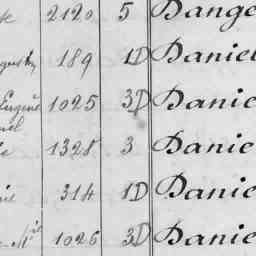 se 2120 5 Dange
189 1D Daniel
Eugène 1025 3D Danie
1328 3 Danie
314 1D Danie
1026 3D Danie